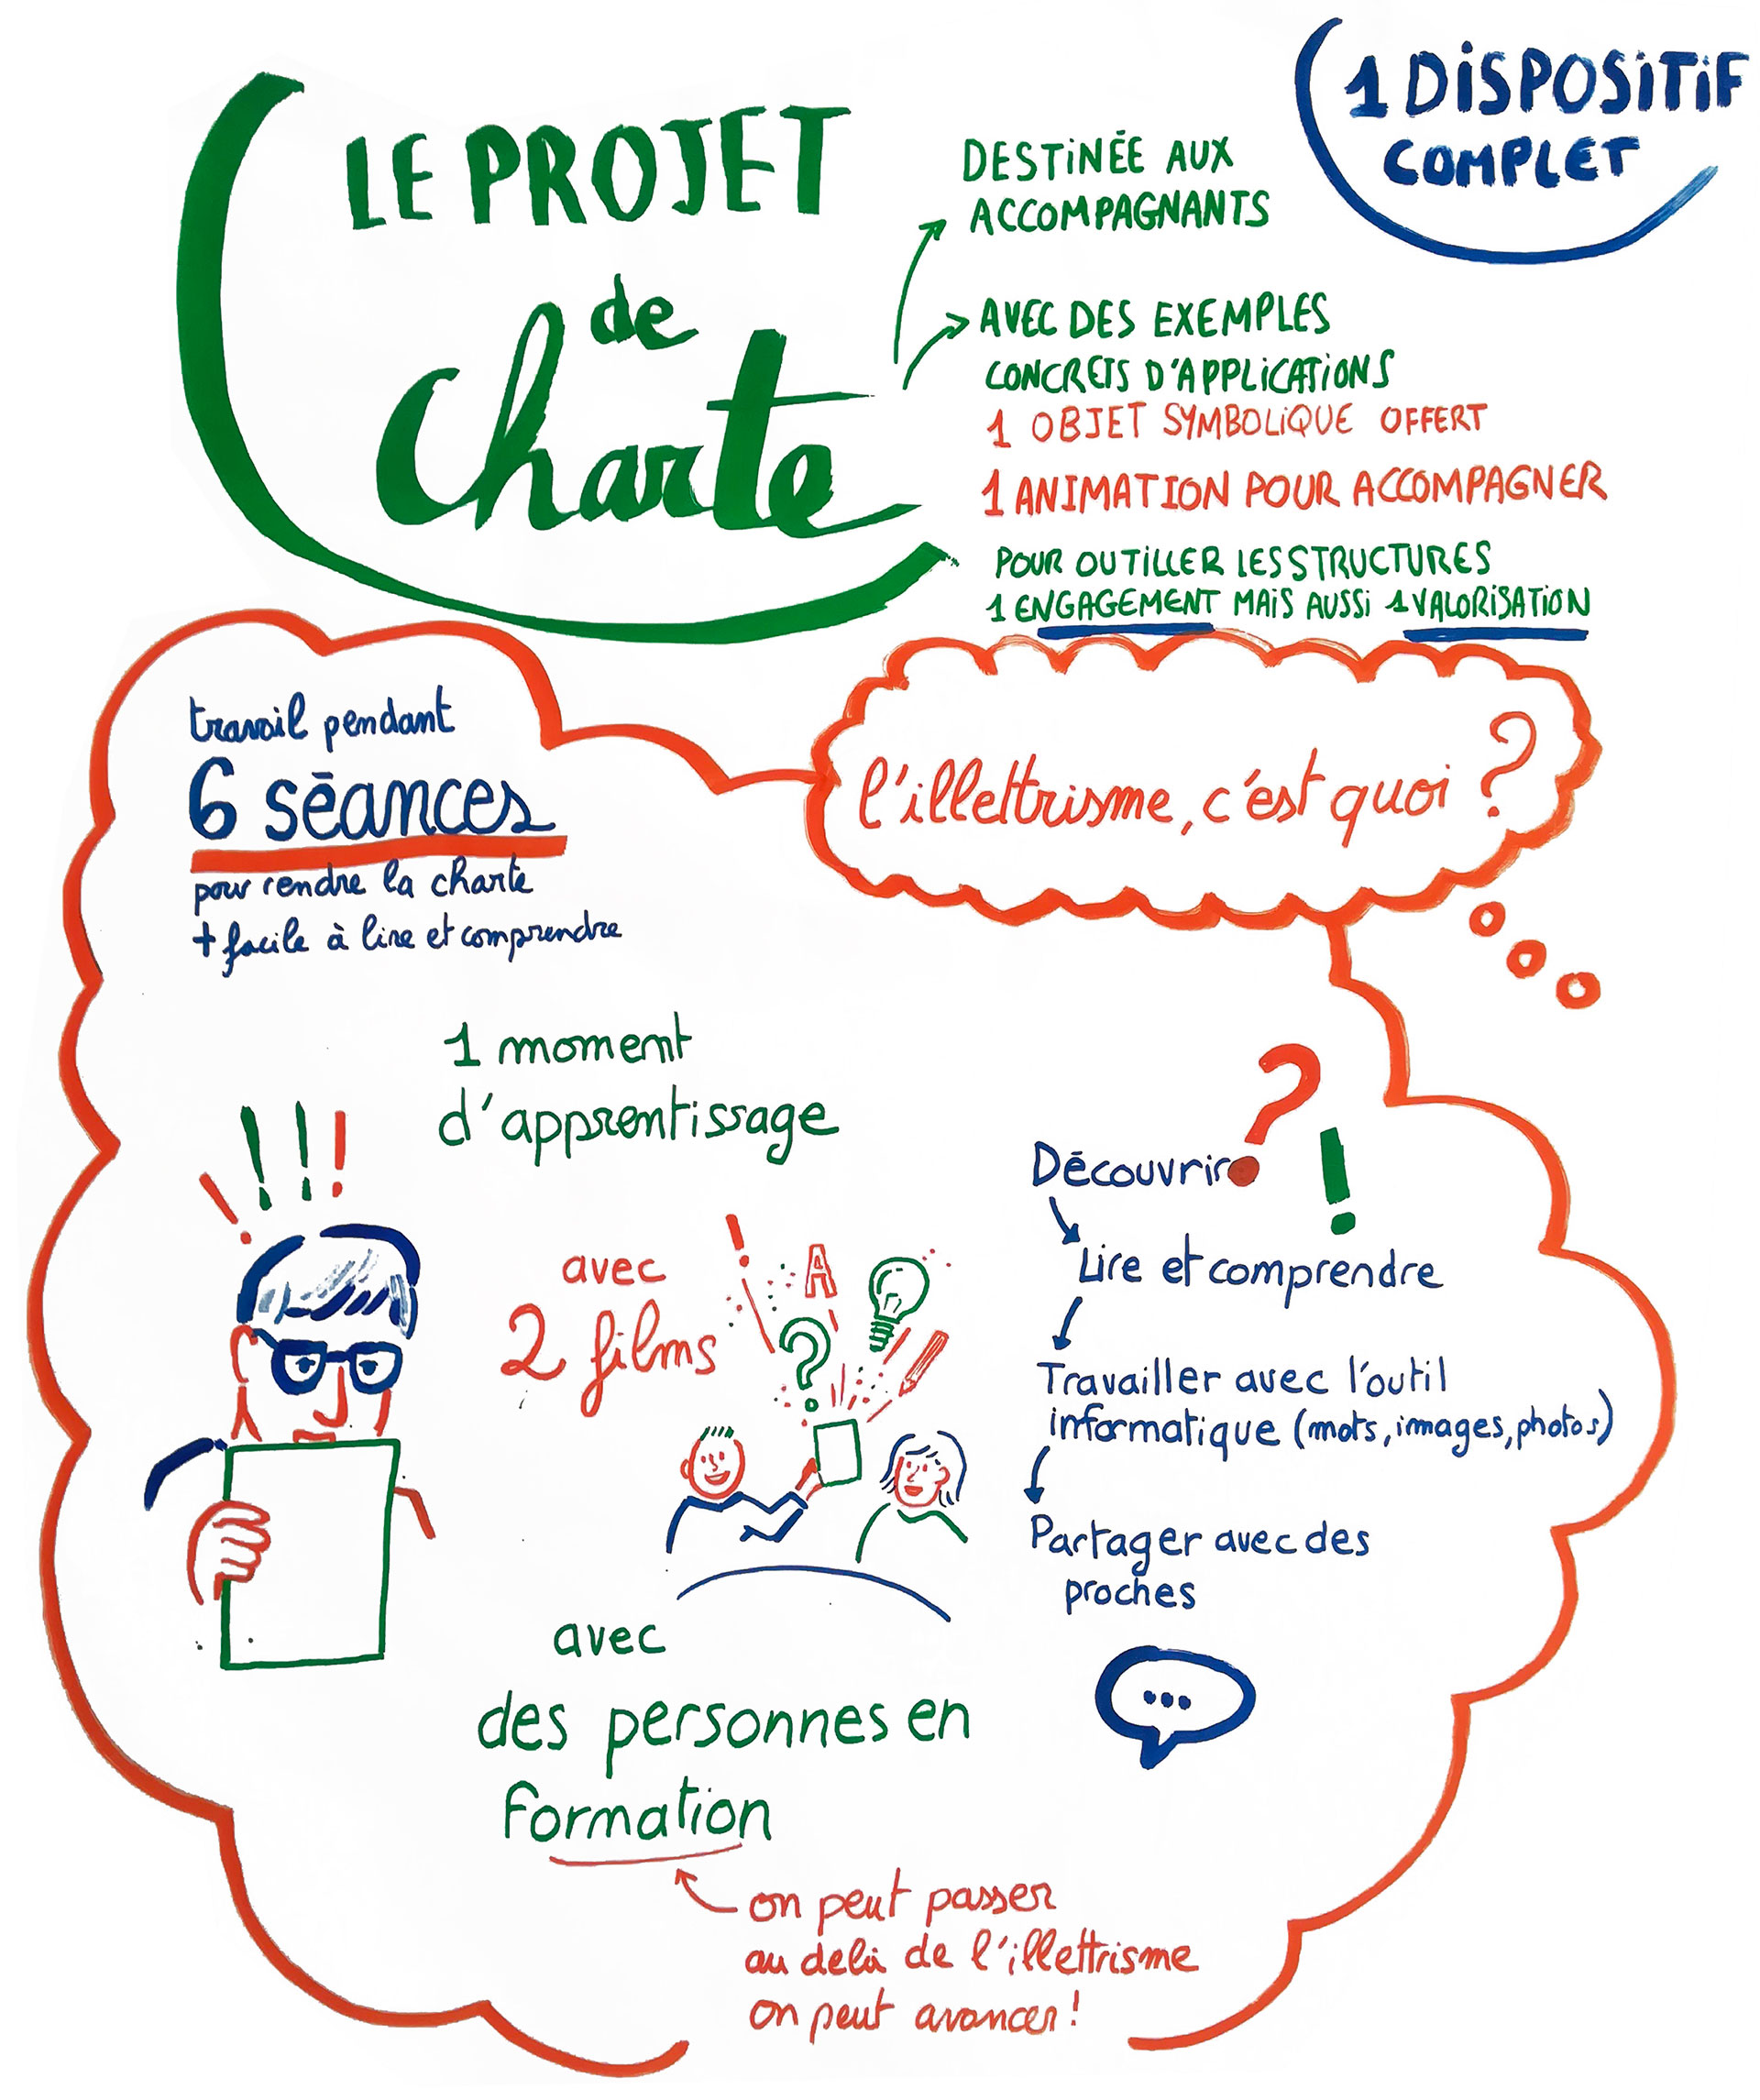 LE PROJET
de
Charte
1 DISPOSITIF
COMPLET
DESTINÉE AUX
ACCOMPAGNANTS
AVEC DES EXEMPLES
CONCRETS D'APPLICATIONS
1 OBJET SYMBOLIQUE OFFERT
1 ANIMATION POUR ACCOMPAGNER
POUR OUTILLER LES STRUCTURES
1 ENGAGEMENT MAIS AUSSI 1 VALORISATION
l'illettrisme, c'est quoi ?
travail pendant
6 séances
pour rendre la charte
+ facile à lire et comprendre
1 moment
d'apprentissage
avec
2 films
A
avec
des personnes en
formation
on peut passer
au delà de l'illettrisme
on peut avancer !
Découvrir
? !
Lire et comprendre
Travailler avec l'outil
informatique (mots, images, photos)
Partager avec des
proches
...